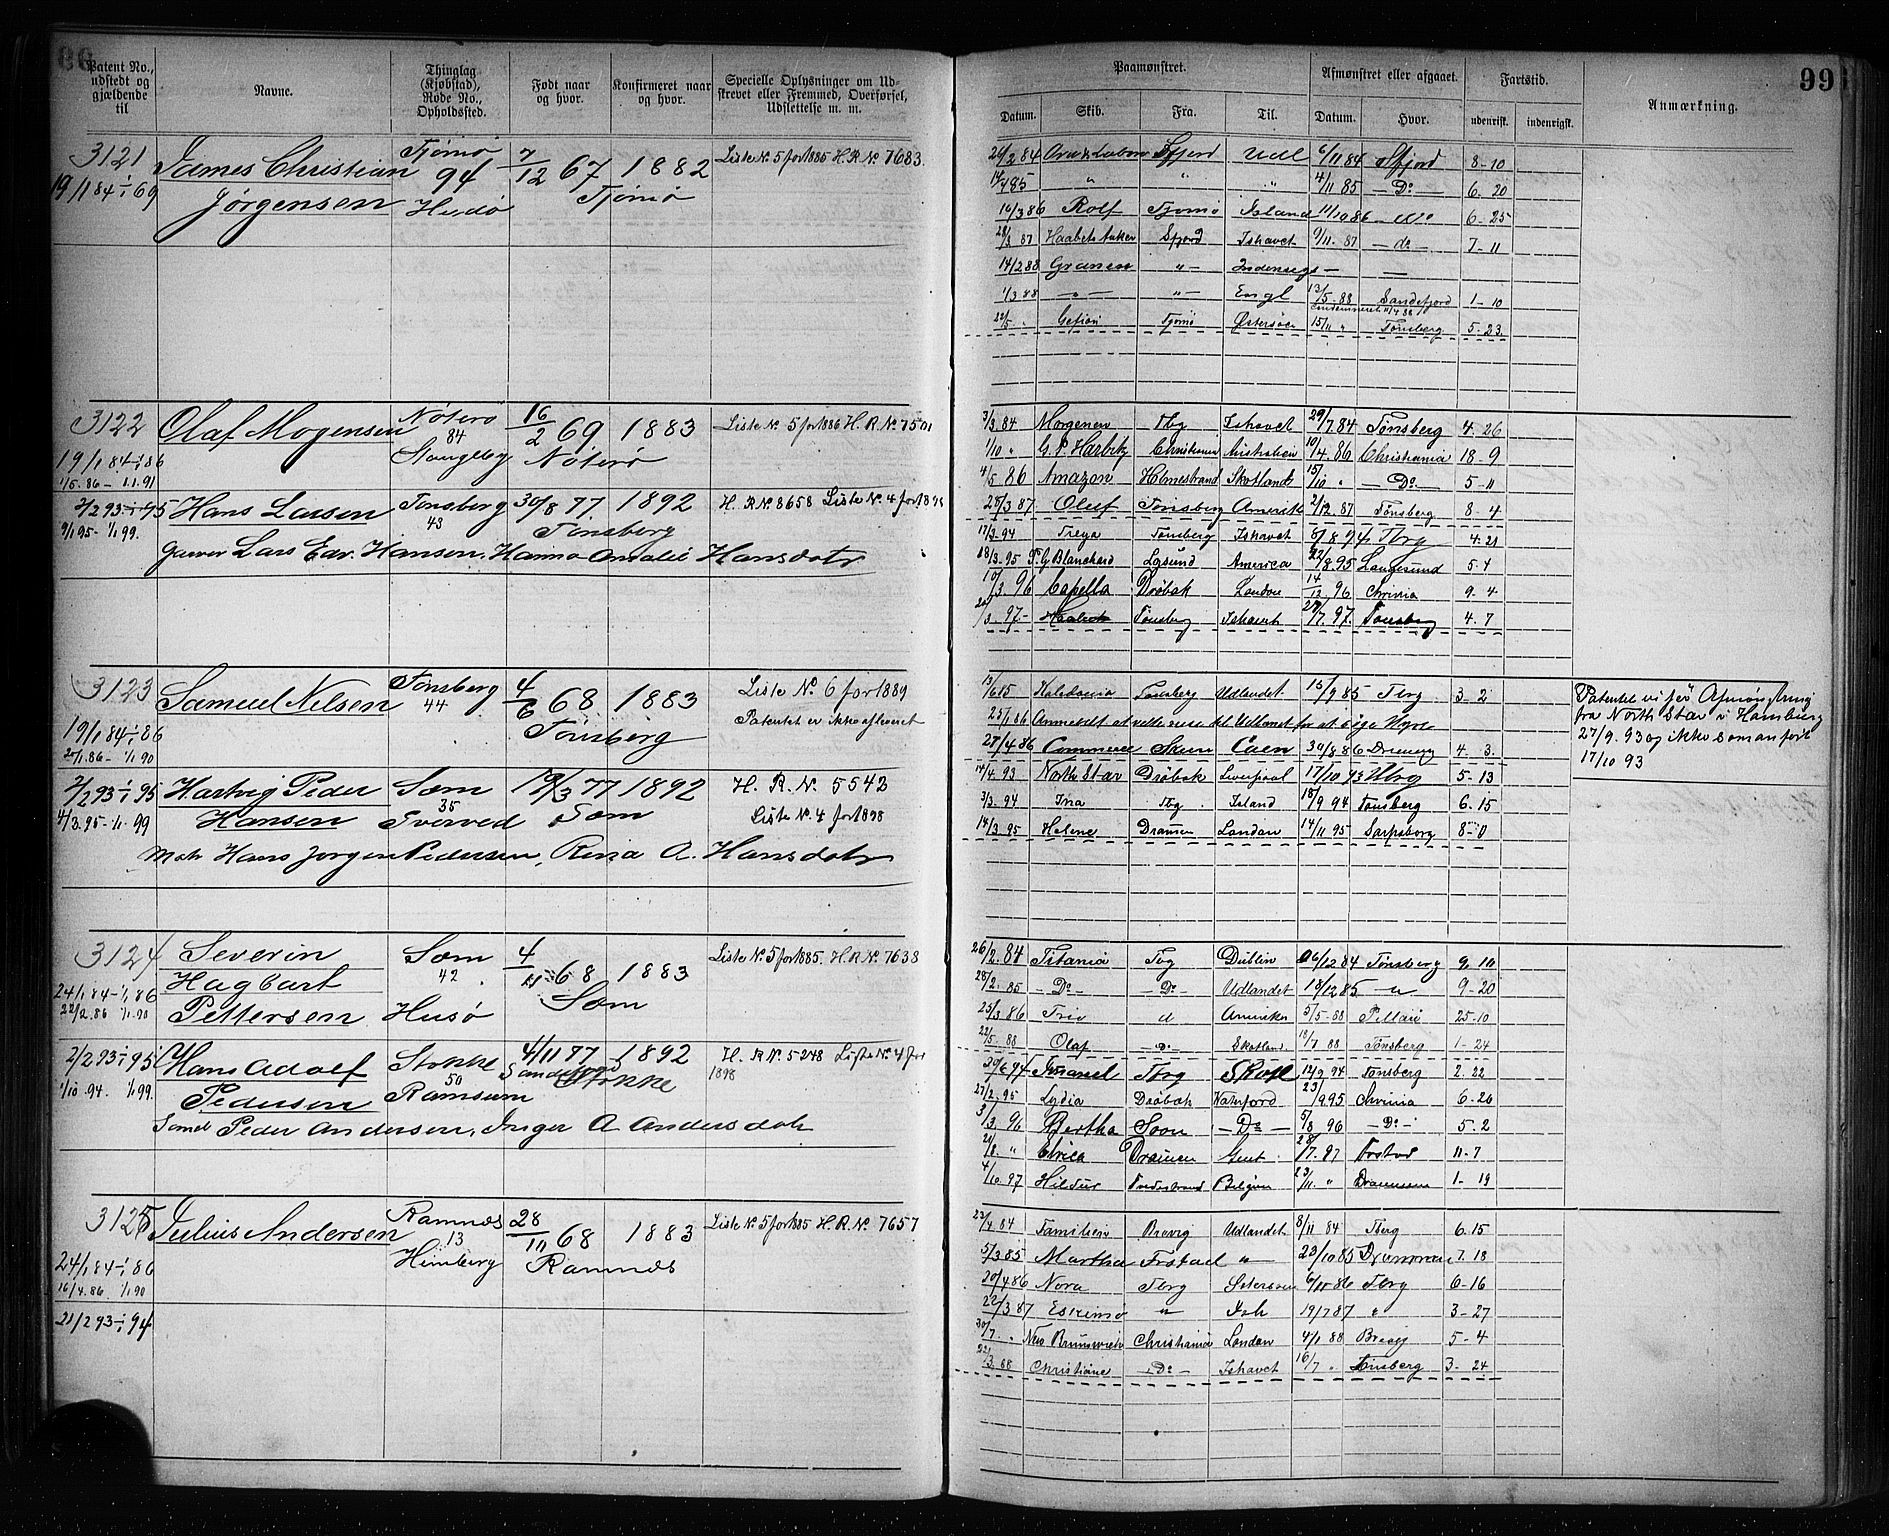 99
Patent No., udstedt og gjældende til
Navne.
Thinglag (Kjøbstad), Rode No., Opholdssted.
Født naar og hvor.
Konfirmeret naar og hvor.
Specielle Oplysninger om Udskrevet eller Fremmed, Overførsel, Udslettelse m. m.
Paamønstret.
Afmønstret eller afgaaet.
Fartstid.
Anmærkning.
Datum. Skib. Fra. Til. Datum. Hvor. udenrigsk. indenrigsk.
3121 James Christian Tjømø 7/12 67 1882 Liste No. 5 for 1885 H. R. No. 7683.
19/1 84 - 1/1 69 Jørgensen 94 Tjømø
Hvasser
3122 Olaf Mogensen Nøterø 16/2 69 1883 Liste No. 5 for 1886 H. R. No. 7501
19/1 84 - 1/1 86 84 Nøterø
1/5. 86 - 1.1.91
2/2 93 - 1/1 95 Hans Larsen Tønsberg 30/8 77 1892 H. R. No. 8658 Liste No. 4 for 1898
9/1 95 - 1/1 99. 43 Tønsberg
Garver Lars Edv. Hansen, Hanna Amalie Hansdotr
3123 Samuel Nilsen Tønsberg 4/6 68 1883 Liste No. 6 for 1889
19/1 84 - 1/1 86 44 Tønsberg Patentet er ikke afleveret
20/1. 86 - 1/1 90
2/2 93 - 1/1 95 Hartvig Peder Sæm 19/3 77 1892 H. R. No. 5542
4/3. 95 - 1/1 99 Hansen 35 Tverved Sæm Liste No. 4 for 1898
Matr Hans Jørgen Pedersen, Rina A. Hansdotr
3124 Severin Sæm 4/11 68 1883 Liste No. 5 for 1885. H. R. No. 7638
24/1 84 - 1/1 86 Hagbart 42
22/2. 86 1/1 90 Pettersen Husø Sæm
2/2 93 - 1/1 95 Hans Adolf Stokke 4/11 77 1892 H. R No. 5248 Liste No. 4 for 1898
1/10. 94. 1/1 99. Pedersen 50 Ramsum Stokke
Sømd Peder Andersen, Inger A Andersdotr
3125 Julius Andersen Ramnes 28/11 68 1883 Liste No. 5 for 1885 H. R. No. 7657
24/1 84 - 1/1 86 13 Himberg Ramnes
16/4. 86. 1/1 90
21/2 93 - 1/1 94
Sfjord Udl 6/11 84 Sfjord 8-10
4/11 85 — Do — 6. 20
16/3 86 Rolf Tjømø Island 11/10 86 6-25
28/3 87 Sfjord Ishavet 9/11. 87 — do — 7-11
14/2 88 Granen — " — Indenrigs —
1/3 88 — " — — " — Engl 13/5-88 Sandefjord 1-10
22/5 Gefion Tjømø Østersøen 15/11 " Tønsberg 5-23
3/3. 84 Morgenen Tbg Ishavet 29/7. 84 Tønsberg 4. 26
1/10 " Christiania Australien 10/4. 86 Christiania 18-9
4/5 86 Amazon Holmestrand Skotland 15/10 " — Do — 5-11
28/3 87 Oluf Tønsberg Amerik 2/12. 87 Tønsberg 8-4
17/3. 94 Freya Tønsberg Ishavet 8/8. 94 Tbrg 4.21
18/3. 95 Blanchard America 22/8. 95 Langesund 5 4
10/3. 96 Capella Drøbak London 14/12 96 Chrnia 9. 4
20/3. 97- Tønsberg Ishavet 27/7. 97. Tønsberg 4. 7
Kaledonia Tønsberg Udlandet 15/9 85 Tbrg 3. 2
25/1 86 Anmeldt at ville reise til Udlandet for at søge Hyre
27/4 86 Commerce Skien Caen 30/8 86 4. 3.
14/4. 93 North Star Drøbak Liverpool 17/10 93 Tbrg 5-13
3/3. 94 Ina Tbg Island 18/9 94 Tønsberg 6. 15
14/3. 95 Helene Dramen London 14/11 95 Sarpsborg 8-0
Patentet vi før Afmønstring
fra North Star i Hamburg
27/9. 93 og ikke som anført
17/10 93
26/2. 84 Titania Tbg Dublin 6/12 84 Tønsberg 9. 10
28/2. 85 — Do — — Do — Udlandet 18/12 85 — " 9-20
25/3 86 Trio d Amerika 3/5-88 Pillau 25-10
22/5. 88 Olaf — Do — Skotland 18/7 88 Tønsberg 1-24
Tbrg Skotl 12/9 94 Tønsberg 2. 22
27/2. 95 Lydia Drøbak Waterford 23/9 95 Chrnia 6-26
3/3. 96 Bertha Soon — Do — 5/8 96 — Do — 5. 2
21/8. " Elvica Dramen Gent 28/7. 97 Frstad 11-7
4/10. 97 Hildur Tvedestrand Belgien 23/11 " Drammen 1-19
23/4. 84 Familien Brevig Udlandet 8/11 84 Tberg 6. 15
5/3. 85 Martha Frstad " — 23/10 85 Drammen 7. 18
20/4 86 Nora Tbrg Østersøen 6/11 86 Tbrg 6-16
22/3 87 Eskimo " Ish 19/7 87 " 3-27
30/7. " New Brunswick Christiania London 4/1 88 Brevig 5-4
22/3. 88 Christiane — Do — Ishavet 16/7 " Tønsberg 3-24